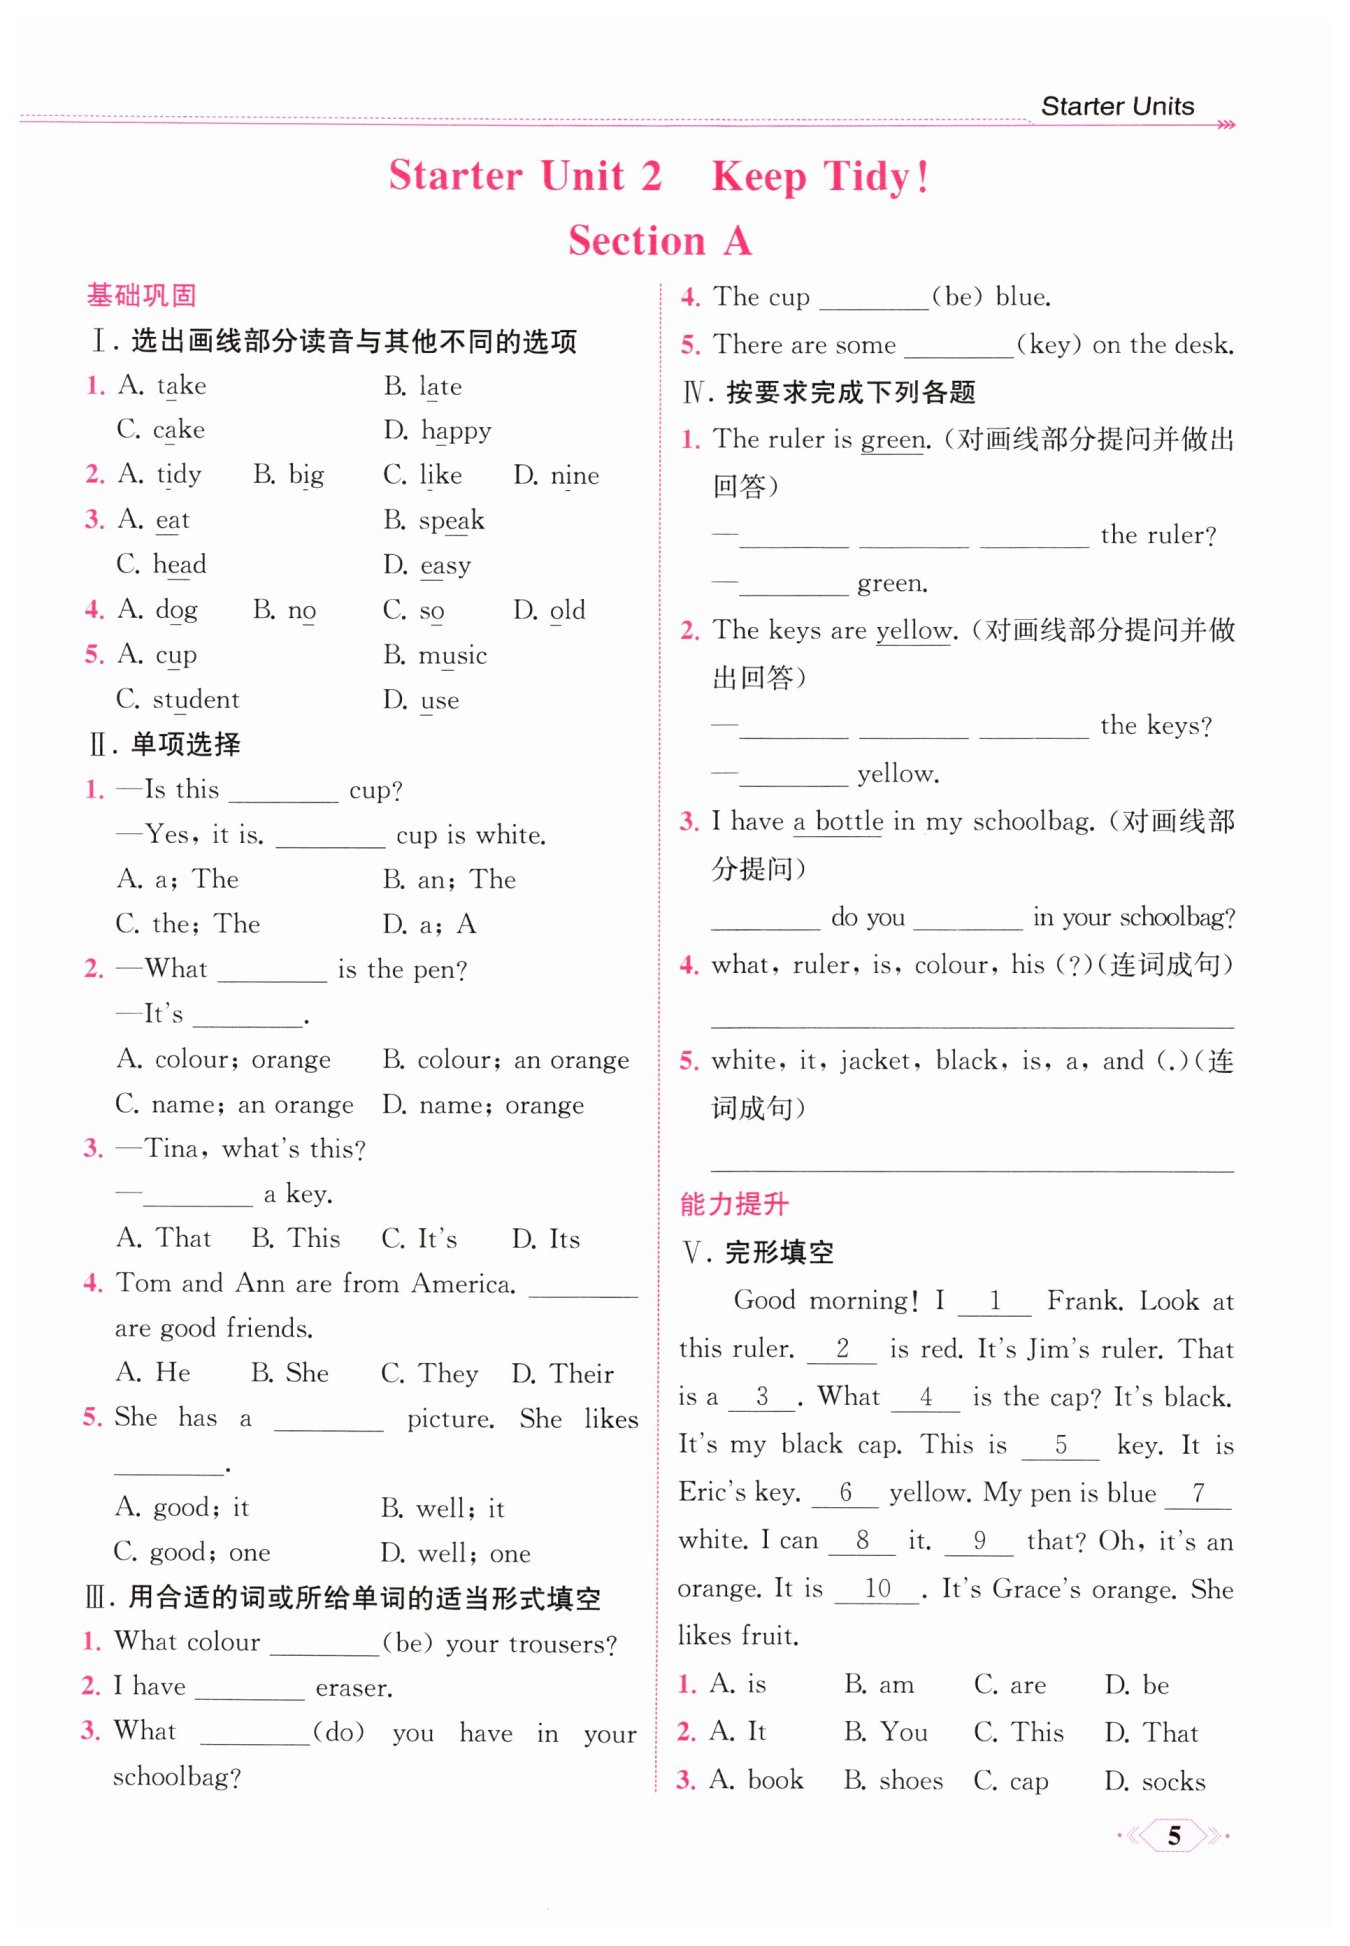 Starter Units
Starter Unit 2 Keep Tidy!
Section A
基础巩固
Ⅰ. 选出画线部分读音与其他不同的选项
1. A. take B. late
C. cake D. happy
2. A. tidy B. big C. like D. nine
3. A. eat B. speak
C. head D. easy
4. A. dog B. no C. so D. old
5. A. cup B. music
C. student D. use
Ⅱ. 单项选择
1. —Is this ________ cup?
—Yes, it is. ________ cup is white.
A. a; The B. an; The
C. the; The D. a; A
2. —What ________ is the pen?
—It's ________.
A. colour; orange B. colour; an orange
C. name; an orange D. name; orange
3. —Tina, what's this?
—________ a key.
A. That B. This C. It's D. Its
4. Tom and Ann are from America. ________
are good friends.
A. He B. She C. They D. Their
5. She has a ________ picture. She likes
________.
A. good; it B. well; it
C. good; one D. well; one
Ⅲ. 用合适的词或所给单词的适当形式填空
1. What colour ________(be) your trousers?
2. I have ________ eraser.
3. What ________(do) you have in your
schoolbag?
4. The cup ________(be) blue.
5. There are some ________(key) on the desk.
Ⅳ. 按要求完成下列各题
1. The ruler is green. (对画线部分提问并做出
回答)
—________ ________ ________ the ruler?
—________ green.
2. The keys are yellow. (对画线部分提问并做
出回答)
—________ ________ ________ the keys?
—________ yellow.
3. I have a bottle in my schoolbag. (对画线部
分提问)
________ do you ________ in your schoolbag?
4. what, ruler, is, colour, his (?)(连词成句)
5. white, it, jacket, black, is, a, and (.)(连
词成句)
能力提升
Ⅴ. 完形填空
Good morning! I 1 Frank. Look at
this ruler. 2 is red. It's Jim's ruler. That
is a 3 . What 4 is the cap? It's black.
It's my black cap. This is 5 key. It is
Eric's key. 6 yellow. My pen is blue 7
white. I can 8 it. 9 that? Oh, it's an
orange. It is 10 . It's Grace's orange. She
likes fruit.
1. A. is B. am C. are D. be
2. A. It B. You C. This D. That
3. A. book B. shoes C. cap D. socks
5